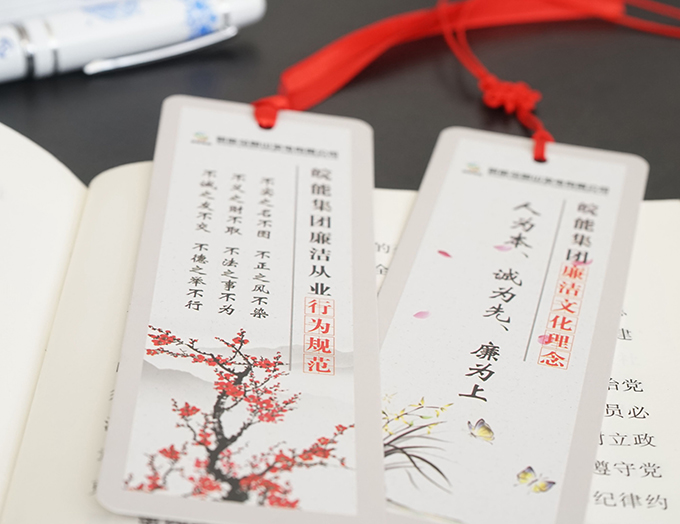 皖能集团廉洁从业行为规范
不实之名不图 不正之风不染
不义之财不取 不法之事不为
不诚之友不交 不德之举不行
皖能集团廉洁文化理念
人为本、诚为先、廉为上
的
建
治党
员必
立政
遵守党
纪律约